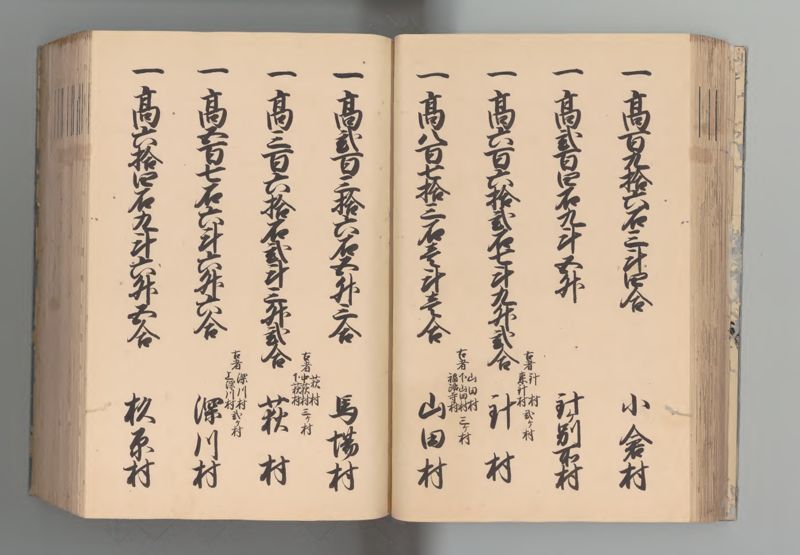 一 高百九拾六石三斗四合 小倉村
一 高弐百四石九斗五升 計別所村
一 高六百六拾弐石七斗九升弐合 計村
古者 計村 東計村 弐ケ村
一 高八百七拾三石壱斗壱合 山田村
古者 山田村 下山田村 福満寺村 三ケ村
一 高弐百三拾六石五升三合 馬場村
一 高三百六拾石弐斗三升弐合 萩村
古者 萩村 中萩村 下萩村 三ケ村
一 高五百七石六斗六升六合 深川村
古者 深川村 上深川村 弐ケ村
一 高六拾四石九斗六升五合 杦原村